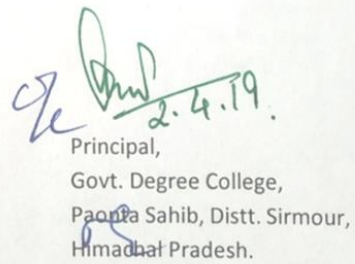 2.4.19.
Principal,
Govt. Degree College,
Paonta Sahib, Distt. Sirmour,
Himachal Pradesh.